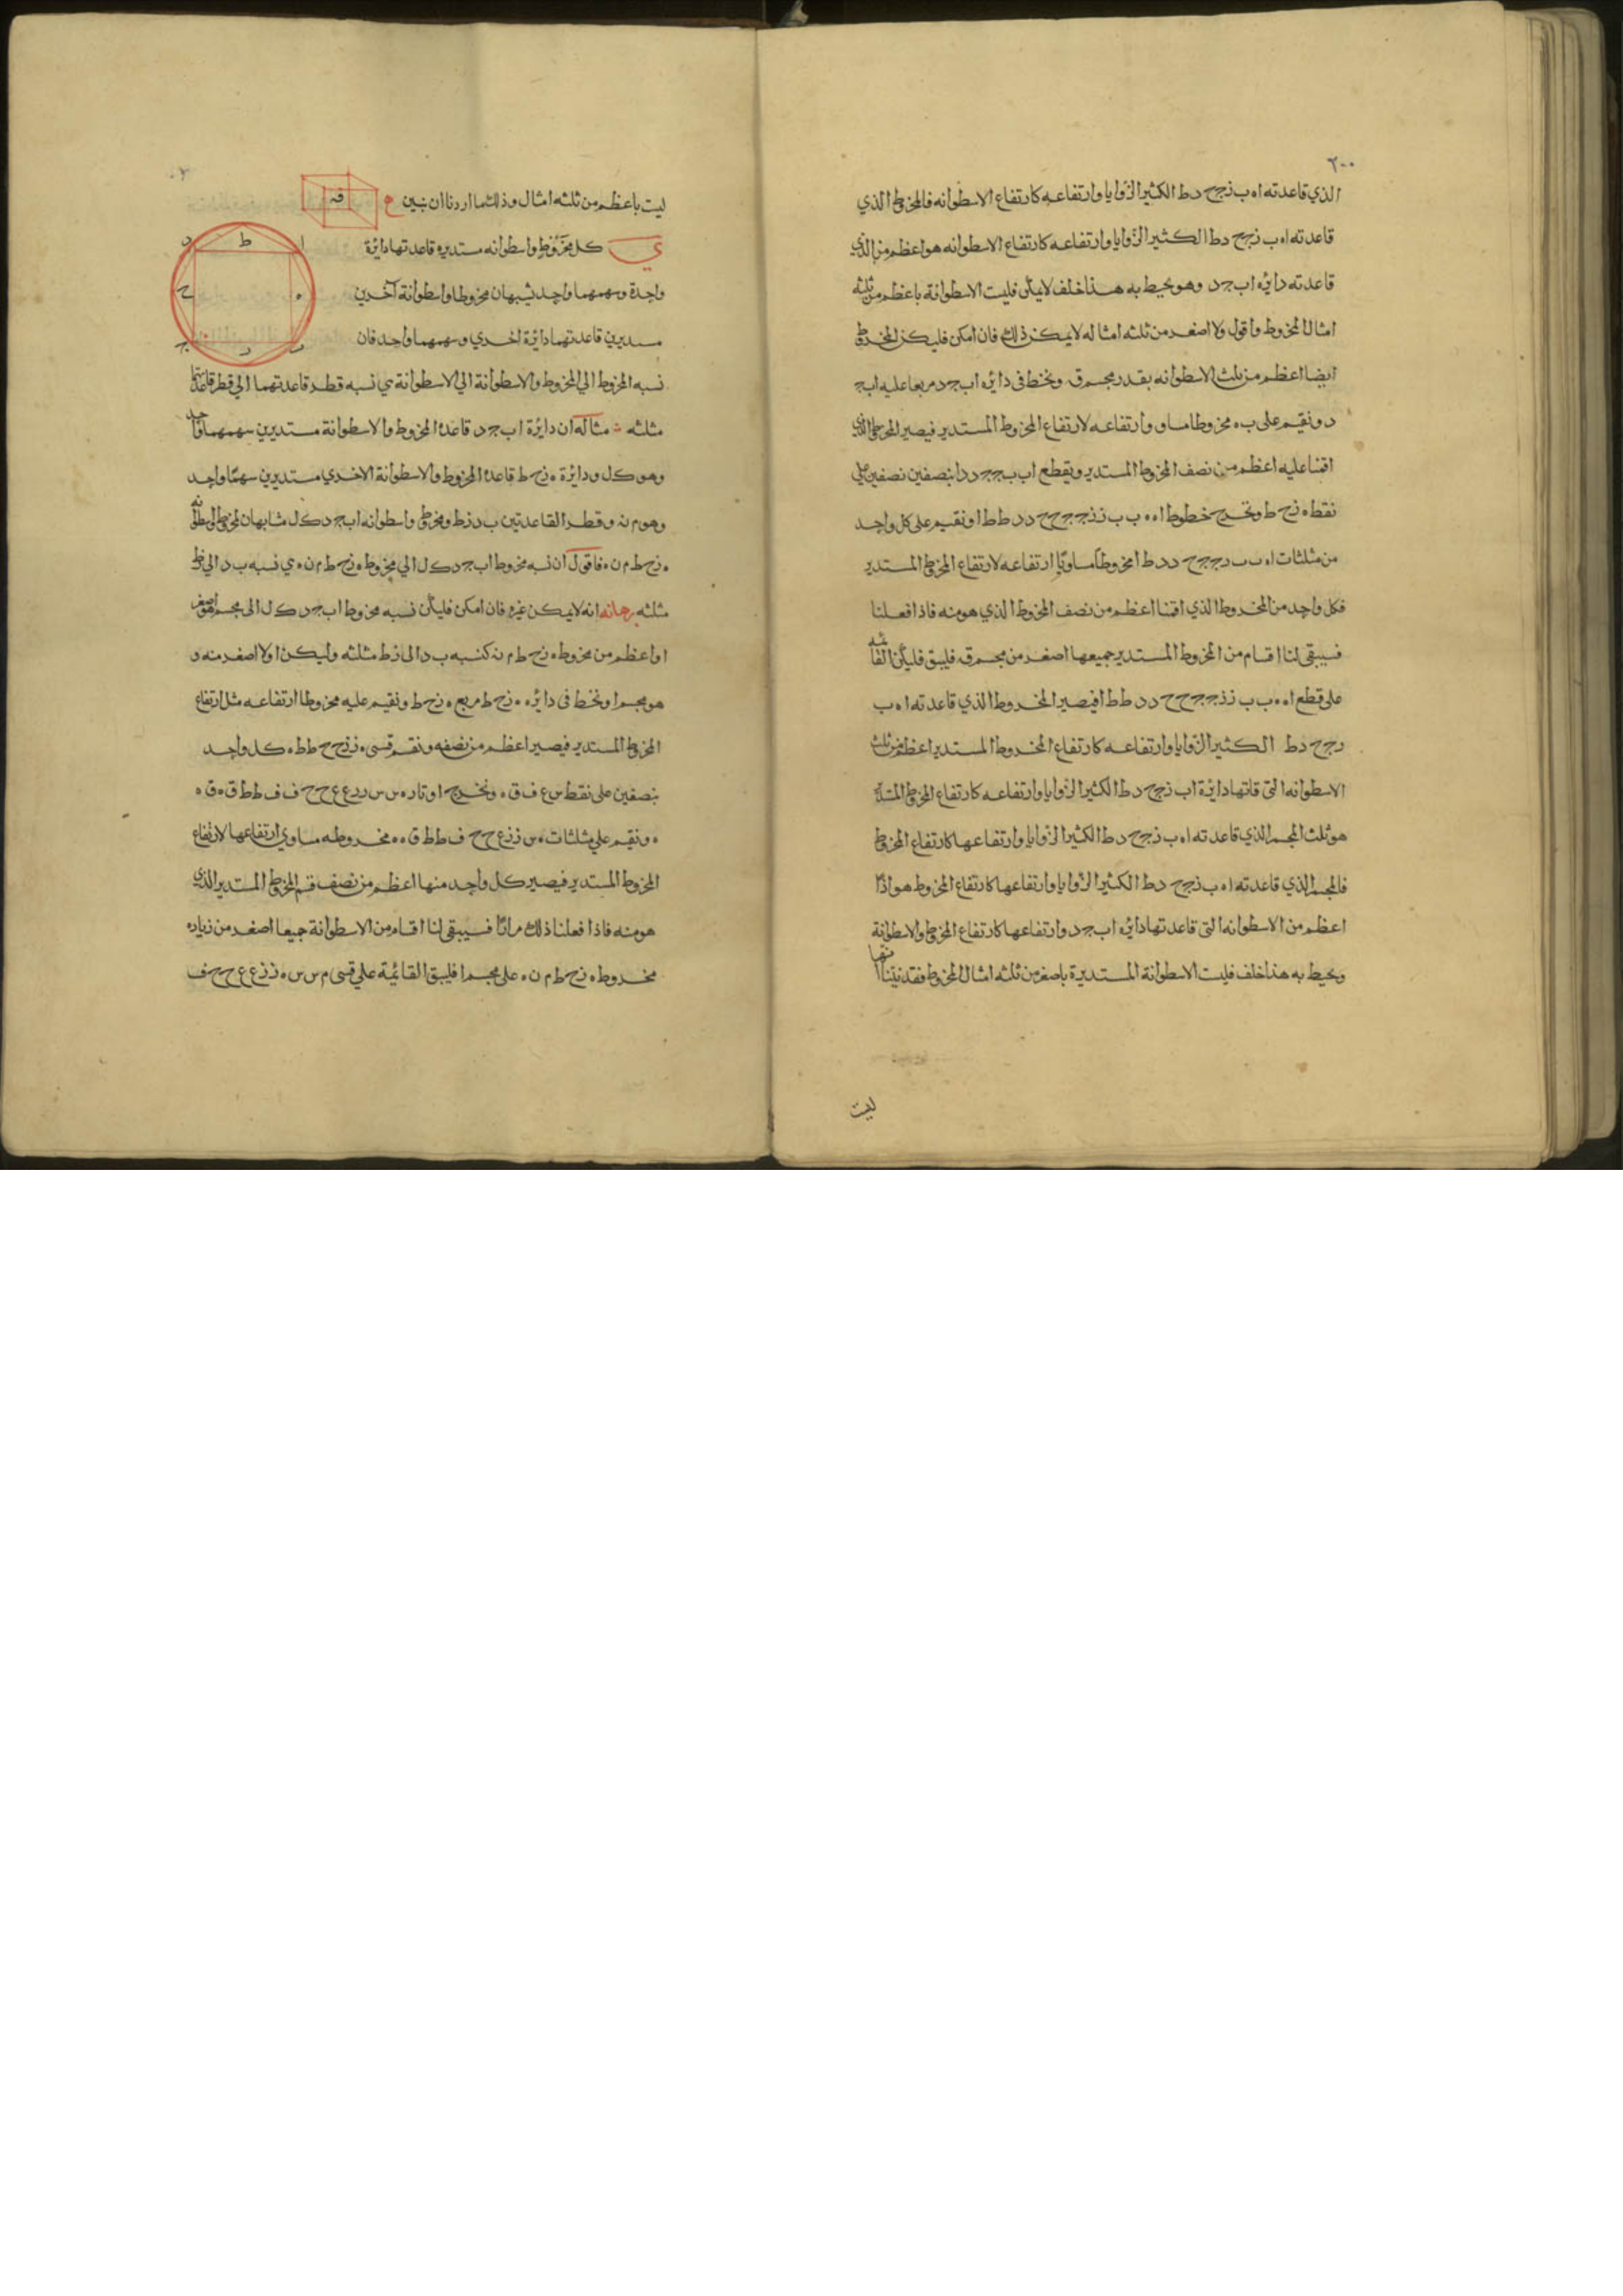 ٢٠٠
الذي قاعدته ا ه ب ز ج ح د ط الكثير الزوايا وارتفاعه كارتفاع الاسطوانه فالمخروط الذي
قاعدته ا ه ب ز ج ح د ط الكثير الزوايا وارتفاعه كارتفاع الاسطوانه هو اعظم من الذي
قاعدته دائره ا ب ج د وهو يحيط به هذا خلف لا يمكن فليست الاسطوانة باعظم من ثلثه
امثال المخروط واقول ولا اصغر من ثلثه امثاله لا يمكن ذلك فان امكن فليكن المخروط
ايضا اعظم من ثلث الاسطوانه بقدر مجسم ق ونخط في دائره ا ب ج د مربعا عليه ا ب ج
د ونقيم على ب ه مخروطا مساو وارتفاعه لارتفاع المخروط المستدير فيصير المخروط الذي
اقمنا عليه اعظم من نصف المخروط المستدير ويقطع ا ب ب ج ج د د ا بنصفين نصفين على
نقطه ه ز ح ط ونخرج خطوط ا ه ه ب ب ز ز ج ج ح ح د د ط ط ا ونقيم على كل واحد
من مثلثات ا ه ب ب ز ج ج ح د د ط ا مخروطا مساويا ارتفاعه لارتفاع المخروط المستدير
فكل واحد من المخروط الذي اقمنا اعظم من نصف المخروط الذي هو منه فاذا فعلنا
فسيبقى لنا اقسام من المخروط المستدير جميعها اصغر من مجسم ق فليبق فليكن القائمه
على قطع ا ه ه ب ب ز ز ج ج ح ح د د ط ط ا فيصير المخروط الذي قاعدته ا ه ب
ز ج ح د ط الكثير الزوايا وارتفاعه كارتفاع المخروط المستدير اعظم من ثلث
الاسطوانه التي قاعدتها دائرة ا ب ز ج ح د ط الكثير الزوايا وارتفاعه كارتفاع المخروط المستدير
هو ثلث المجسم الذي قاعدته ا ه ب ز ج ح د ط الكثير الزوايا وارتفاعها كارتفاع المخروط
فالمجسم الذي قاعدته ا ه ب ز ج ح د ط الكثير الزوايا وارتفاعها كارتفاع المخروط هو اذًا
اعظم من الاسطوانه التي قاعدتها دائره ا ب ج د وارتفاعها كارتفاع المخروط والاسطوانة
ويحيط به هذا خلف فليست الاسطوانة المستديرة باصغر من ثلثه امثال المخروط فقد تبين انها
ليست
ليست باعظم من ثلثه امثال وذلك ما اردنا ان نبين
قه
ي كل مخروط واسطوانه مستديره قاعدتها دائرة
واحدة وسهمهما واحد يشبهان مخروطا واسطوانة آخرين
مستديرين قاعدتهما دائرة اخري وسهمهما واحد فان
نسبه المخروط الي المخروط والاسطوانة الي الاسطوانة هي نسبه قطر قاعدتهما الي قطر قاعدتهما
مثلثه مثاله ان دايرة ا ب ج د قاعدة المخروط والاسطوانة مستديرين سهمهما واحد
وهو ك ل ودايرة ه ز ح ط قاعدة المخروط والاسطوانة الاخري مستديرين سهمهما واحد
وهو م ن وقطرا القاعدتين ب د ز ط ومخروط واسطوانه ا ب ج د ك ل مشابهان لمخروط واسطوانه
ه ز ح ط م ن فاقول ان نسبه مخروط ا ب ج د ك ل الي مخروط ه ز ح ط م ن هي نسبه ب د الي ز ط
مثلثه برهانه انه لا يمكن غيره فان امكن فليكن نسبه مخروط ا ب ج د ك ل الى مجسم اصغر
او اعظم من مخروط ه ز ح ط م ن كنسبه ب د الى ز ط مثلثه وليكن اولا اصغر منه و
هو مجسم ا ونخط في دايره ه ز ح ط مربع ه ز ح ط ونقيم عليه مخروطا ارتفاعه مثل ارتفاع
المخروط المستدير فيصير اعظم من نصفه ونقسم قسي ه ز ز ح ح ط ط ه كل واحد
بنصفين على نقط س ع ف ق ونخرج اوتار ه س س ز ز ع ع ح ح ف ف ط ط ق ق ه
ونقيم علي مثلثات ه س ز ز ع ح ح ف ط ط ق ه مخروطه مساوي ارتفاعها لارتفاع
المخروط المستدير فيصير كل واحد منها اعظم من نصف قسم المخروط المستدير الذي
هو منه فاذا فعلنا ذلك مرارًا فسيبقى لنا اقسام من الاسطوانة جميعا اصغر من زياده
مخروط ه ز ح ط م ن على مجسم ا فليبق القائمة علي قسي ه س س ز ز ع ع ح ح ف